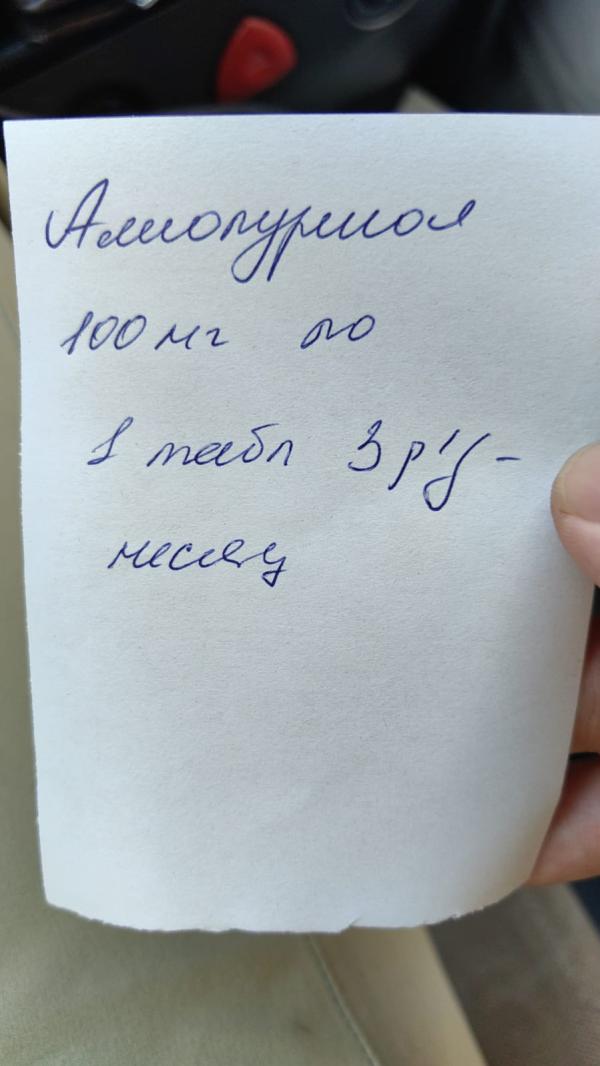 Аллопуринол
100 мг по
1 табл 3 р/д -
месяц